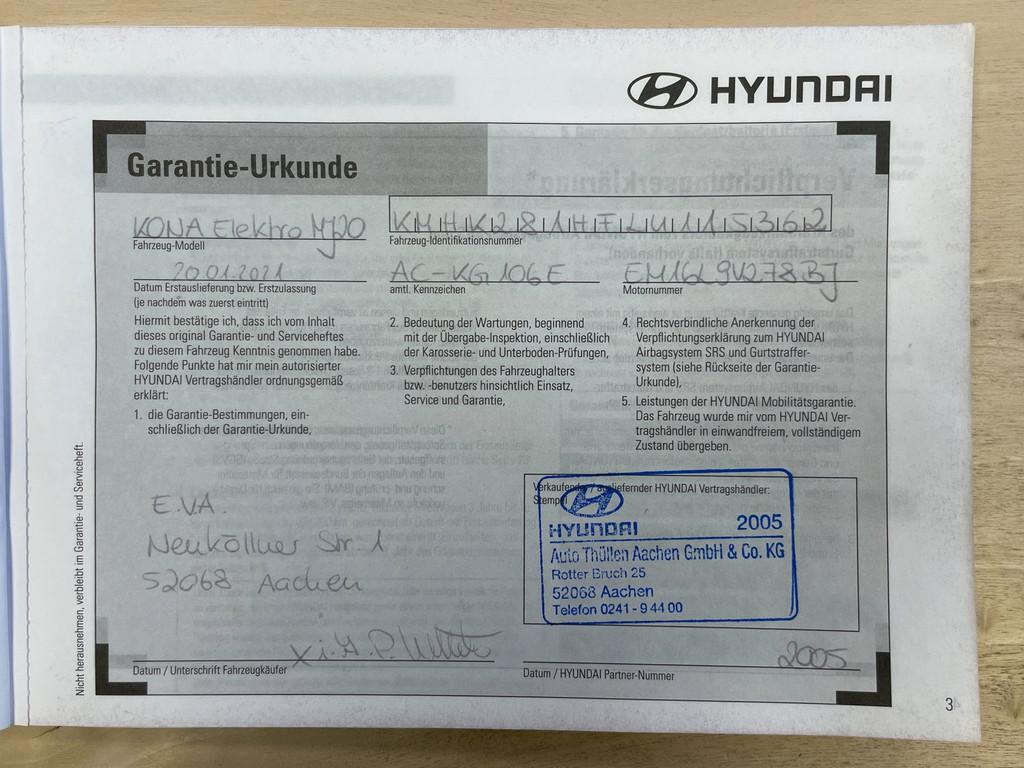 HYUNDAI
Garantie-Urkunde
KONA Elektro MJ20
Fahrzeug-Modell
KMHK281HFLU115362
Fahrzeug-Identifikationsnummer
20.01.2021
Datum Erstauslieferung bzw. Erstzulassung
(je nachdem was zuerst eintritt)
AC-KG 106E
amtl. Kennzeichen
EM16L9V278BJ
Motornummer
Hiermit bestätige ich, dass ich vom Inhalt
dieses original Garantie- und Serviceheftes
zu diesem Fahrzeug Kenntnis genommen habe.
Folgende Punkte hat mir mein autorisierter
HYUNDAI Vertragshändler ordnungsgemäß
erklärt:
1. die Garantie-Bestimmungen, ein-
schließlich der Garantie-Urkunde,
2. Bedeutung der Wartungen, beginnend
mit der Übergabe-Inspektion, einschließlich
der Karosserie- und Unterboden-Prüfungen,
3. Verpflichtungen des Fahrzeughalters
bzw. -benutzers hinsichtlich Einsatz,
Service und Garantie,
4. Rechtsverbindliche Anerkennung der
Verpflichtungserklärung zum HYUNDAI
Airbagsystem SRS und Gurtstraffer-
system (siehe Rückseite der Garantie-
Urkunde),
5. Leistungen der HYUNDAI Mobilitätsgarantie.
Das Fahrzeug wurde mir vom HYUNDAI Ver-
tragshändler in einwandfreiem, vollständigem
Zustand übergeben.
E.V.A.
Neuköllner Str. 1
52068 Aachen
Verkaufender / ausliefernder HYUNDAI Vertragshändler:
Stempel
HYUNDAI 2005
Auto Thüllen Aachen GmbH & Co. KG
Rotter Bruch 25
52068 Aachen
Telefon 0241 - 9 44 00
x i.A.
Datum / Unterschrift Fahrzeugkäufer
2005
Datum / HYUNDAI Partner-Nummer
Nicht herausnehmen, verbleibt im Garantie- und Serviceheft.
3